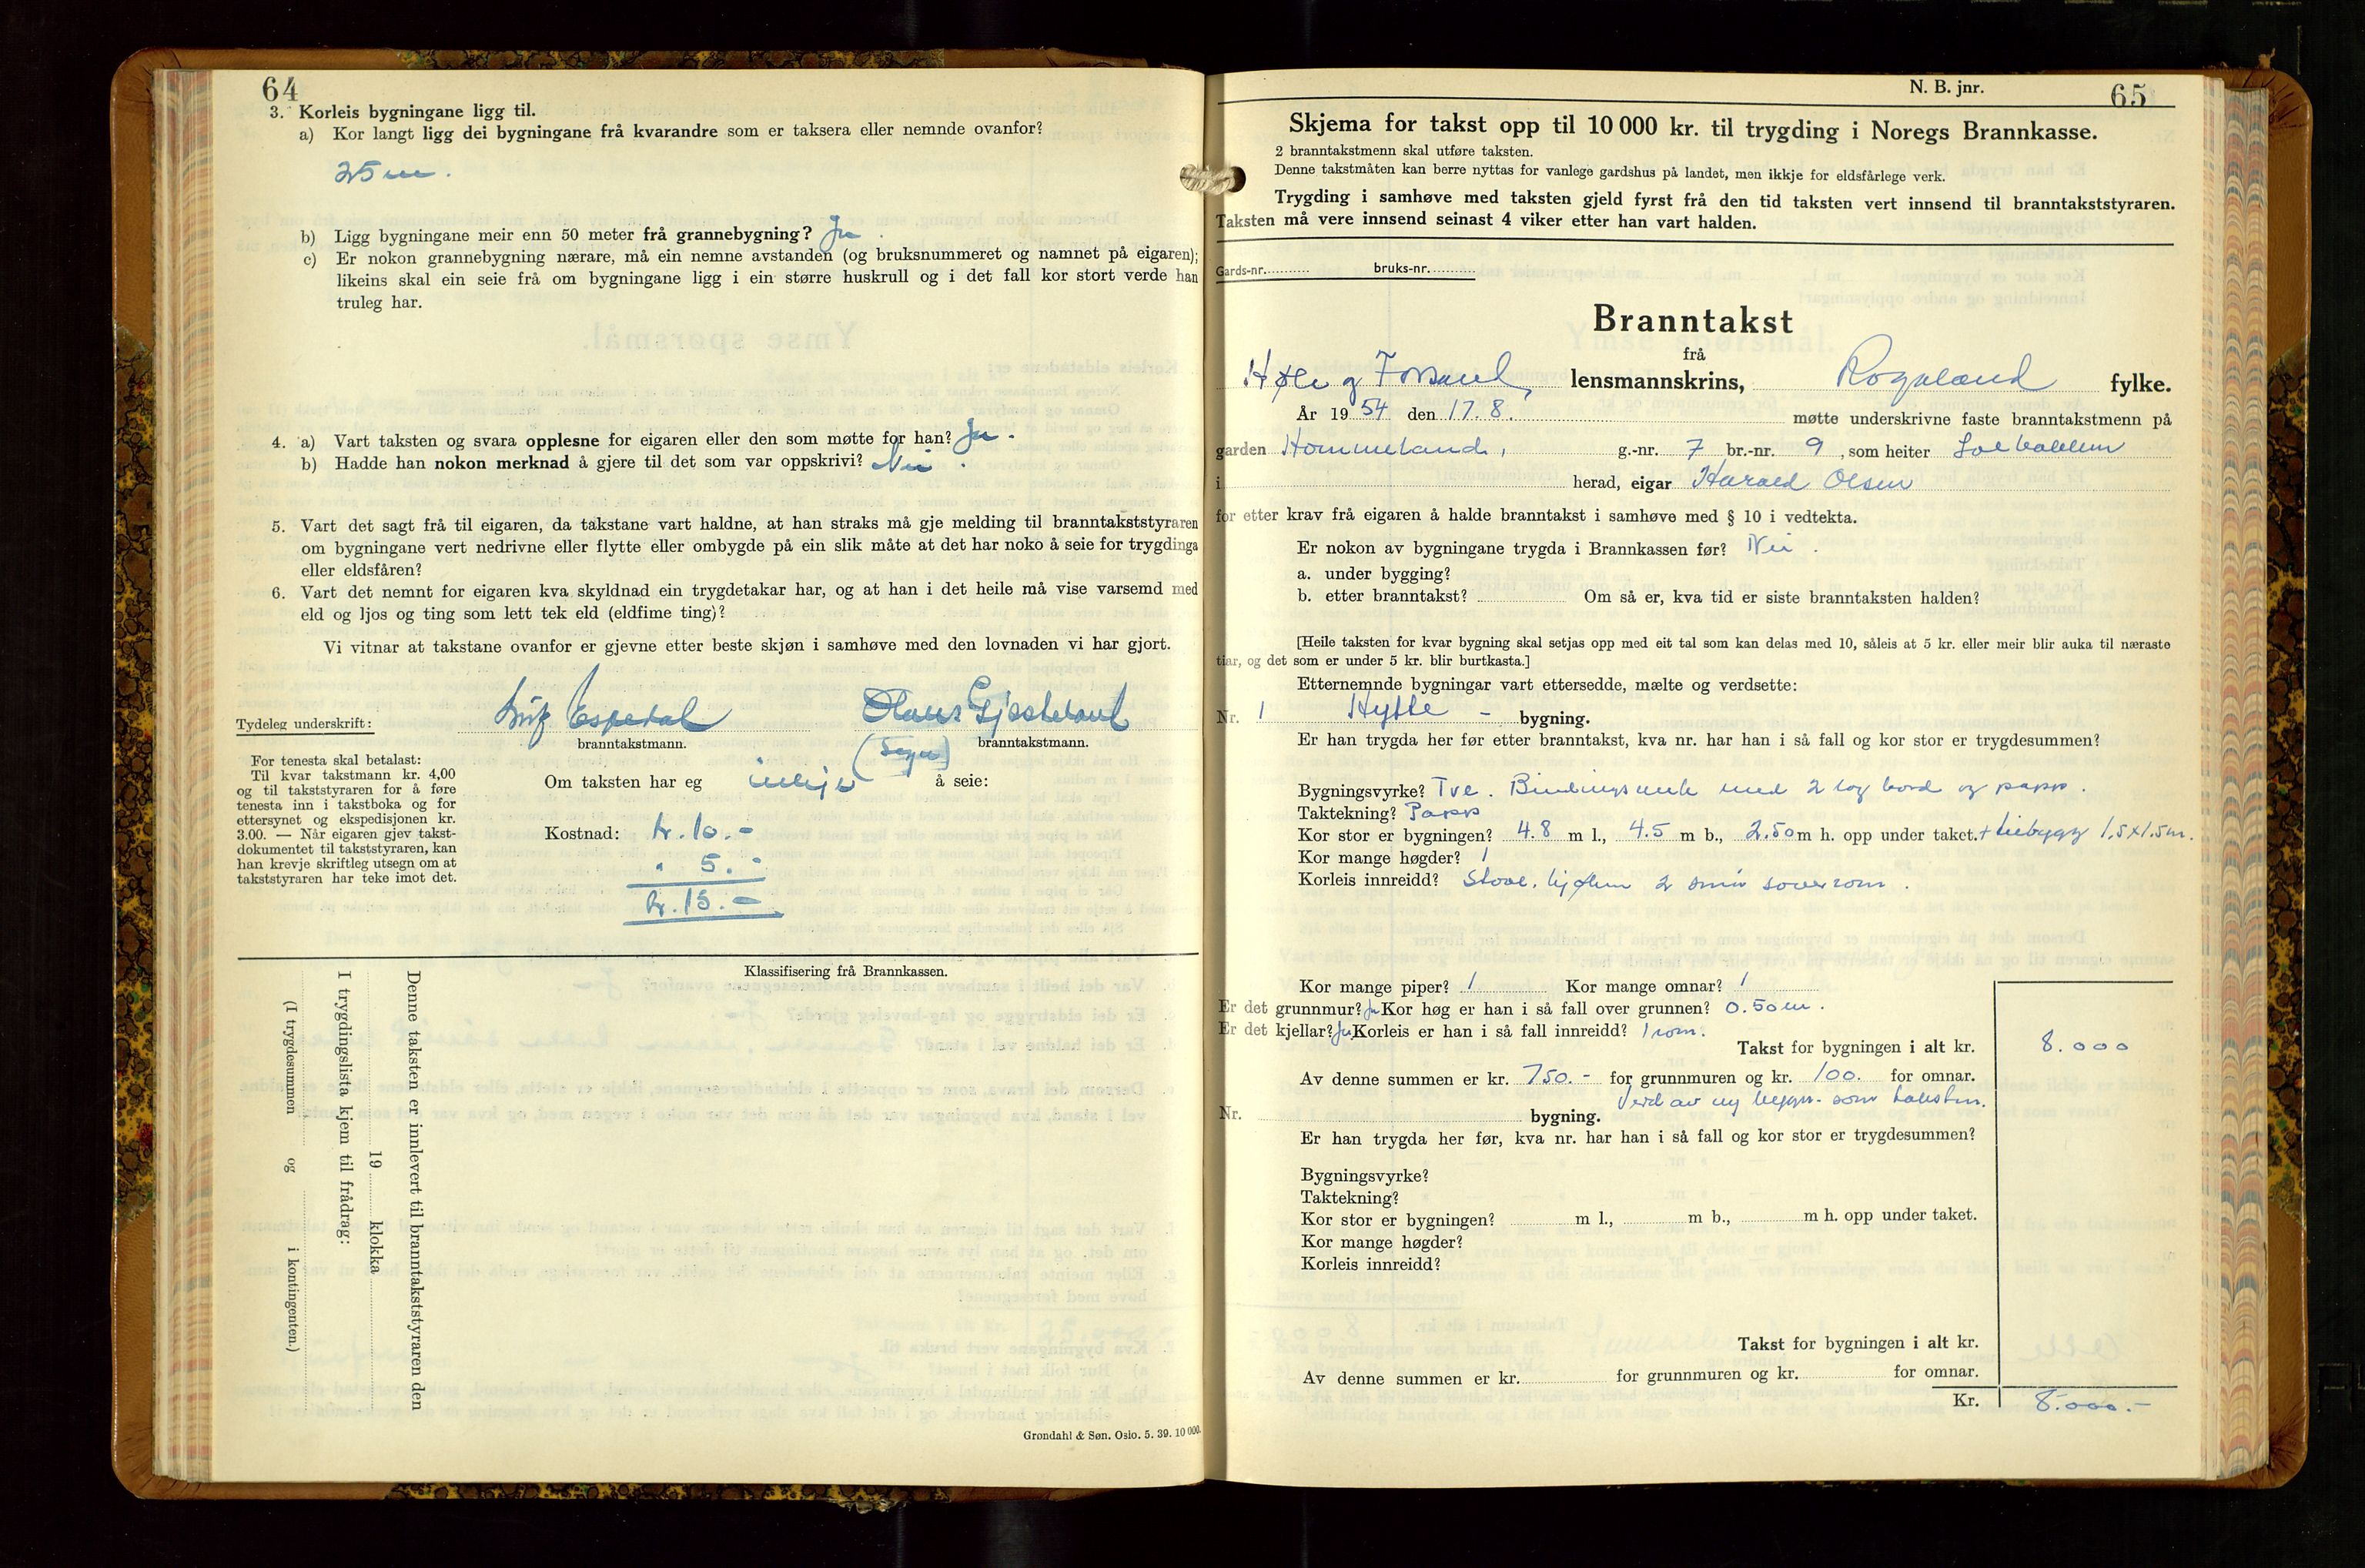 64
3. Korleis bygningane ligg til.
a) Kor langt ligg dei bygningane frå kvarandre som er taksera eller nemnde ovanfor?
25 m.
b) Ligg bygningane meir enn 50 meter frå grannebygning? Ja.
c) Er nokon grannebygning nærare, må ein nemne avstanden (og bruksnummeret og namnet på eigaren);
likeins skal ein seie frå om bygningane ligg i ein større huskrull og i det fall kor stort verde han
truleg har.
4. a) Vart taksten og svara opplesne for eigaren eller den som møtte for han? Ja.
b) Hadde han nokon merknad å gjere til det som var oppskrivi? Nei.
5. Vart det sagt frå til eigaren, da takstane vart haldne, at han straks må gje melding til branntakststyraren
om bygningane vert nedrivne eller flytte eller ombygde på ein slik måte at det har noko å seie for trygdinga
eller eldsfåren?
6. Vart det nemnt for eigaren kva skyldnad ein trygdetakar har, og at han i det heile må vise varsemd med
eld og ljos og ting som lett tek eld (eldfime ting)?
Vi vitnar at takstane ovanfor er gjevne etter beste skjøn i samhøve med den lovnaden vi har gjort.
Tydeleg underskrift: Espedal Olaus Gjesteland
branntakstmann. branntakstmann.
For tenesta skal betalast:
Til kvar takstmann kr. 4,00
og til takststyraren for å føre
tenesta inn i takstboka og for
ettersynet og ekspedisjonen kr.
3.00. — Når eigaren gjev takst-
dokumentet til takststyraren, kan
han krevje skriftleg utsegn om at
takststyraren har teke imot det.
Om taksten har eg inkje å seie:
Kostnad: kr. 10.-
" 5.-
kr. 15.-
Klassifisering frå Brannkassen.
Denne taksten er innlevert til branntakststyraren den
19 klokka
I trygdingslista kjem til frådrag:
(I trygdesummen og i kontingenten.)
Grøndahl & Søn. Oslo. 5. 39. 10 000.
N. B. jnr. 65
Skjema for takst opp til 10 000 kr. til trygding i Noregs Brannkasse.
2 branntakstmenn skal utføre taksten.
Denne takstmåten kan berre nyttas for vanlege gardshus på landet, men ikkje for eldsfårlege verk.
Trygding i samhøve med taksten gjeld fyrst frå den tid taksten vert innsend til branntakststyraren.
Taksten må vere innsend seinast 4 viker etter han vart halden.
Gards-nr. bruks-nr.
Branntakst
frå
Høle og Forsand, lensmannskrins, Rogaland fylke.
År 1954 den 17.8. møtte underskrivne faste branntakstmenn på
garden Hommeland, g.-nr. 7 br.-nr. 9, som heiter Solbakken
i herad, eigar Harald Olsen
for etter krav frå eigaren å halde branntakst i samhøve med § 10 i vedtekta.
Er nokon av bygningane trygda i Brannkassen før? Nei.
a. under bygging?
b. etter branntakst? Om så er, kva tid er siste branntaksten halden?
[Heile taksten for kvar bygning skal setjas opp med eit tal som kan delas med 10, såleis at 5 kr. eller meir blir auka til næraste
tiar, og det som er under 5 kr. blir burtkasta.]
Etternemnde bygningar vart ettersedde, mælte og verdsette:
Nr. 1 Hytte - bygning.
Er han trygda her før etter branntakst, kva nr. har han i så fall og kor stor er trygdesummen?
Bygningsvyrke? Tre. Bindingsverk med 2 lag bord og papp.
Taktekning? Papp
Kor stor er bygningen? 4.8 m l., 4.5 m b., 2.50 m h. opp under taket. + tilbygg 1,5x1,5 m.
Kor mange høgder? 1
Korleis innreidd? Stove, kjøken 2 små soverom.
Kor mange piper? 1 Kor mange omnar? 1
Er det grunnmur? Ja Kor høg er han i så fall over grunnen? 0.50 m.
Er det kjellar? Ja Korleis er han i så fall innreidd? 1 rom.
Takst for bygningen i alt kr. 8.000
Av denne summen er kr. 750.- for grunnmuren og kr. 100. for omnar.
Verd av ny bygn. som taksten.
Nr. bygning.
Er han trygda her før, kva nr. har han i så fall og kor stor er trygdesummen?
Bygningsvyrke?
Taktekning?
Kor stor er bygningen? m l., m b., m h. opp under taket.
Kor mange høgder?
Korleis innreidd?
Takst for bygningen i alt kr.
Av denne summen er kr. for grunnmuren og kr. for omnar.
Kr. 8.000.-